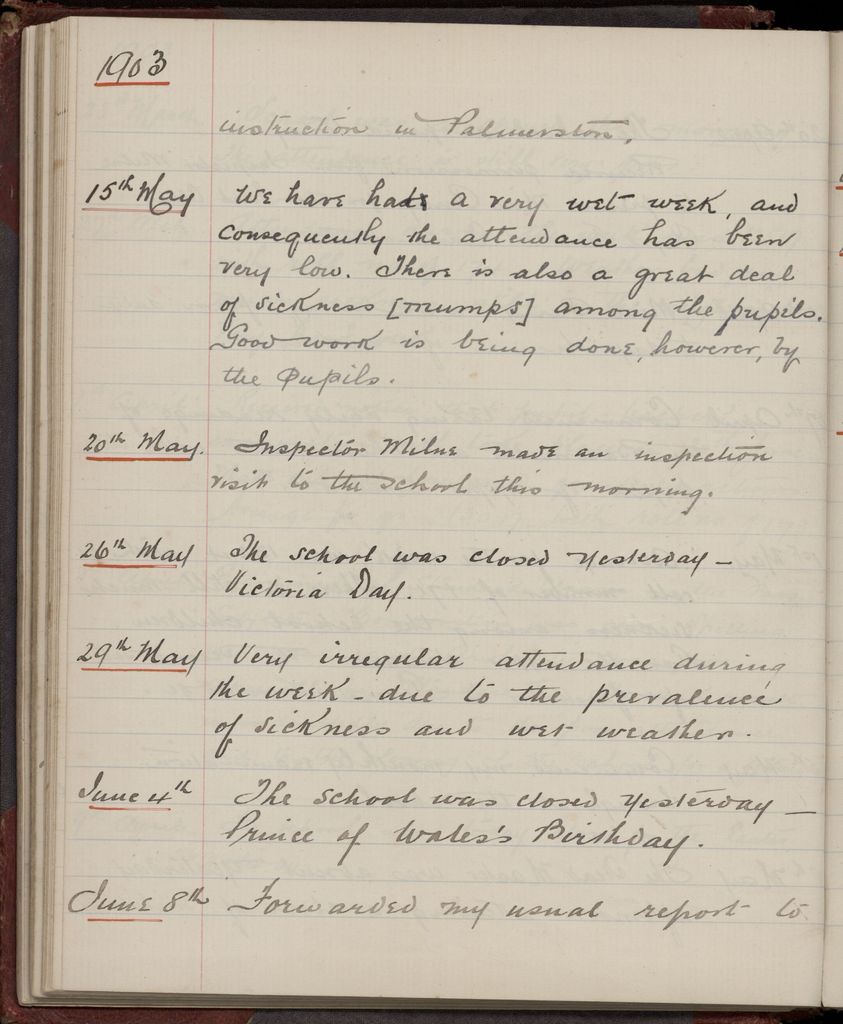 1903
instruction in Palmerston.
15th May We have had a very wet week, and
consequently the attendance has been
very low. There is also a great deal
of sickness [mumps] among the pupils.
Good work is being done, however, by
the Pupils.
20th May. Inspector Milne made an inspection
visit to the school this morning.
26th May The school was closed yesterday –
Victoria Day.
29th May Very irregular attendance during
the week – due to the prevalence
of sickness and wet weather.
June 4th The school was closed yesterday –
Prince of Wales's Birthday.
June 8th Forwarded my usual report to